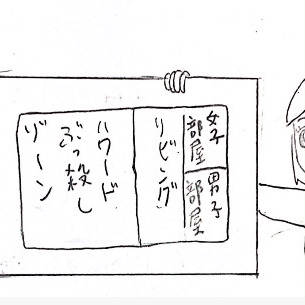 女子
部屋
男子
部屋
リビング
ハワード
ぶっ殺し
ゾーン